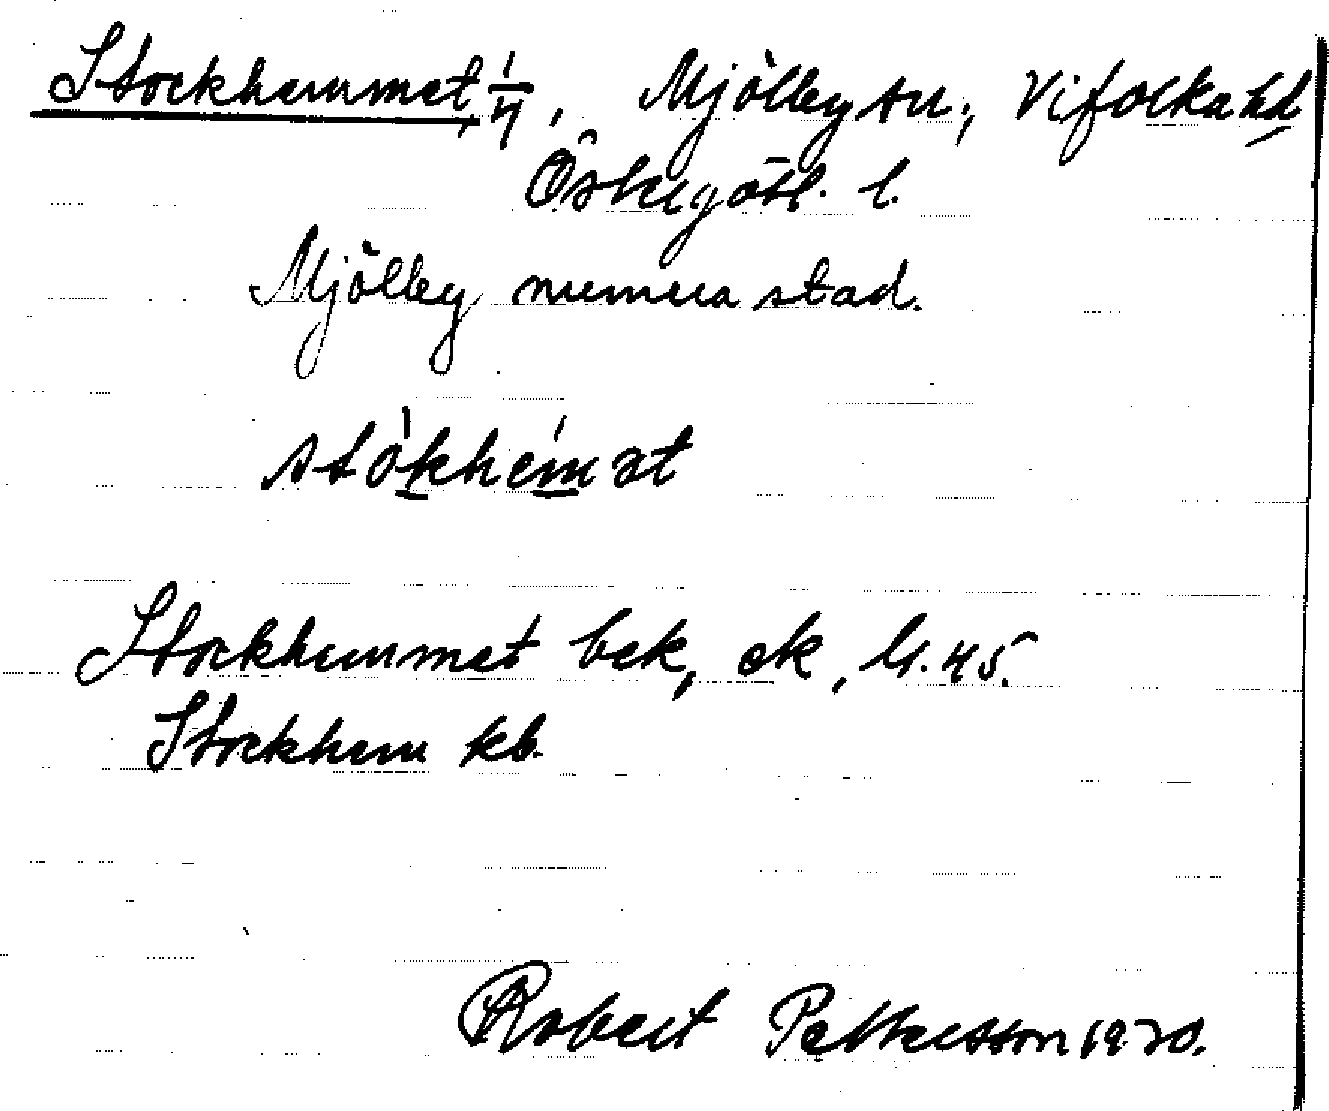 Stockhemmet, 1/4, Mjölby sn, Vifolka hd
Östergötl. l.
Mjölby numera stad.
stòkheḿ ət
Stockhemmet bek, ek, bl. 45.
Stockhem kb.
Robert Pettersson 1930.